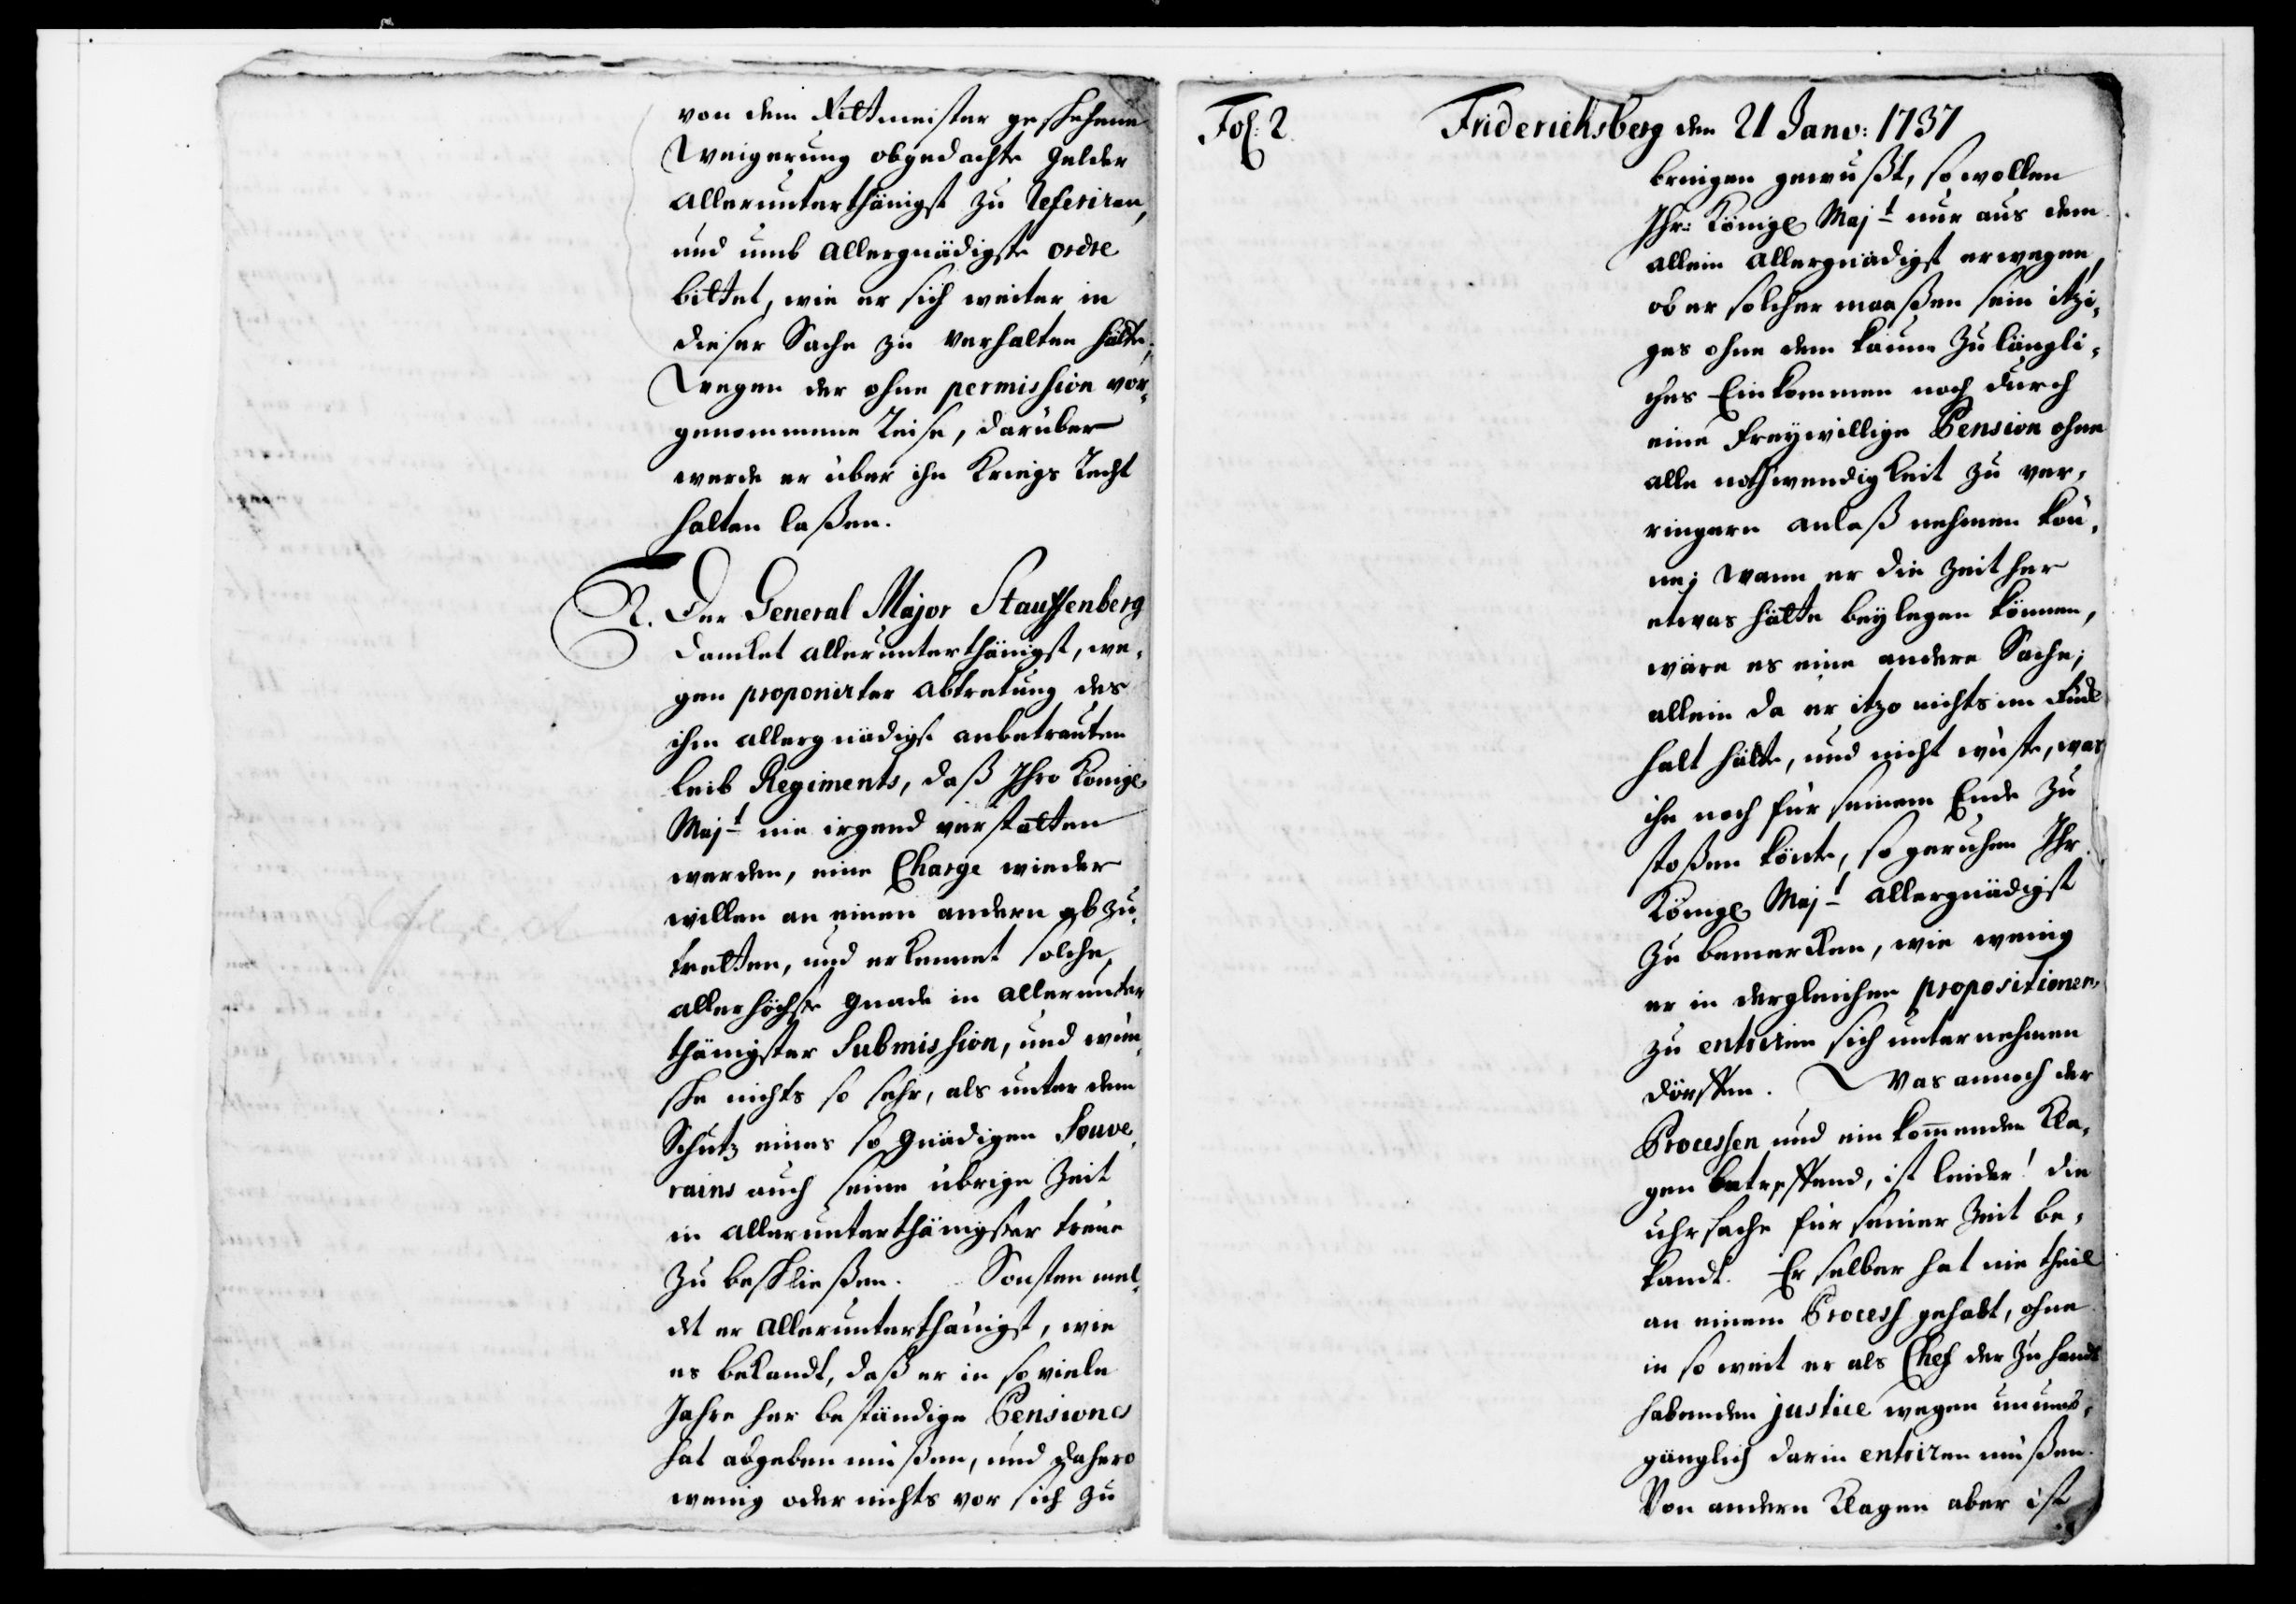 von dem Rittmeister geschehene
Weigerung obgedachte gelder
allerunterthänigst zu referiren,
und umb allergnädigste ordre
bittet, wie er sich weiter in
dieser Sache zu verhalten hätte;
Wegen der ohne permission vor-
genommene Reise, darüber
werde er über ihn Kriegs Recht
halten laßen.
2. Der General Major Stauffenberg
dancket allerunterthänigst, we-
gen proponirter abtretung des
ihm allergnädigst anbetrauten
leib Regiments, daß Ihro Königl
Majt nie irgend verstatten
werden, eine Charge wieder
willen an einen andern abzu-
tretten, und erkennet solche
allerhöchste gnade in allerunter
thänigster Submission, und wün-
sche nichts so sehr, als unter dem
Schutz eines so gnädigen Souve-
rains auch seine übrige Zeit
in allerunterthänigster treue
zu beschließen. Sonsten mel-
det er allerunterthänigst, wie
es bekandt, daß er in so viele
Jahre her beständige Pensiones
hat abgeben müßen, und dahero
wenig oder nichts vor sich zu
Fol: 2. Friderichsberg den 21 Janv: 1737
bringen gewußt, so wollen
Ihr: Königl Majt nur aus dem
allein allergnädigst erwegen,
ob er solcher maaßen sein itzi-
ges ohne dem kaum zulängli-
ches Einkommen noch durch
eine freywillige Pension ohne
alle nothwendigkeit zu ver-
ringern anlaß nehmen kön-
ne; wann er die Zeit her
etwas hätte beylegen können,
wäre es eine andere Sache;
allein da er itzo nichts im
halt hätte, und nicht wuste, was
ihn noch für seinem Ende zu
stoßen könte, so geruhen Ihr
Königl Majt allergnädigst
zu bemercken, wie wenig
er in dergleichen propositionen
zu entriren sich unternehmen
dörffen. Was annoch der
Processen und einkommenden Kla-
gen betreffend, ist leider! die
uhrsache für seiner Zeit be-
kandt. Er selber hat nie theil
an einem Process gehabt, ohne
in so weit er als Chef der zu hand-
habenden justice wegen unumb-
gänglich darin entriren müßen.
Von andern Klagen aber ist